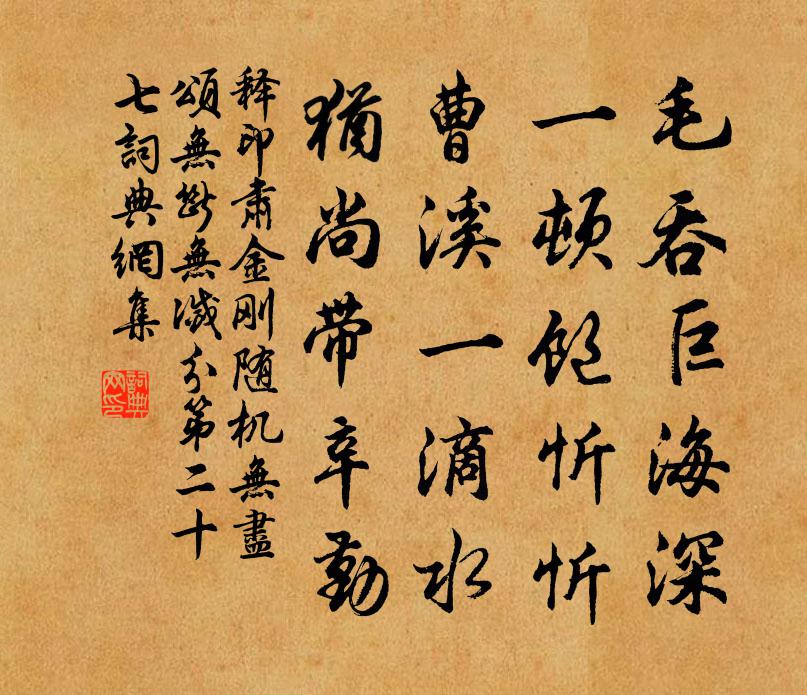 毛吞巨海深
一顿饱忻忻
曹溪一滴水
猶尚带辛勤
释印肃金刚随机無盡
頌無断無滅分第二十
七詞典網集
詞典网印